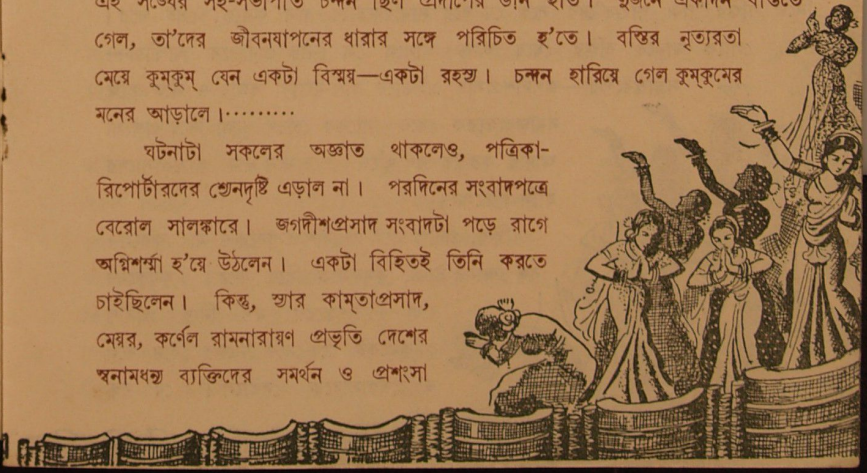 এই সঙ্ঘের সহ-সভাপতি চন্দন ছিল প্রদীপের ডান হাত। দুজনে একদিন বস্তিতে
গেল, তা’দের জীবনযাপনের ধারার সঙ্গে পরিচিত হ’তে। বস্তির নৃত্যরতা
মেয়ে কুম্‌কুম্ যেন একটা বিস্ময়—একটা রহস্য। চন্দন হারিয়ে গেল কুম্‌কুমের
মনের আড়ালে।·········
ঘটনাটা সকলের অজ্ঞাত থাকলেও, পত্রিকা-
রিপোর্টারদের শ্যেনদৃষ্টি এড়াল না। পরদিনের সংবাদপত্রে
বেরোল সালঙ্কারে। জগদীশপ্রসাদ সংবাদটা পড়ে রাগে
অগ্নিশর্ম্মা হ’য়ে উঠলেন। একটা বিহিতই তিনি করতে
চাইছিলেন। কিন্তু, স্যার কাম্‌তাপ্রসাদ,
মেয়র, কর্ণেল রামনারায়ণ প্রভৃতি দেশের
স্বনামধন্য ব্যক্তিদের সমর্থন ও প্রশংসা